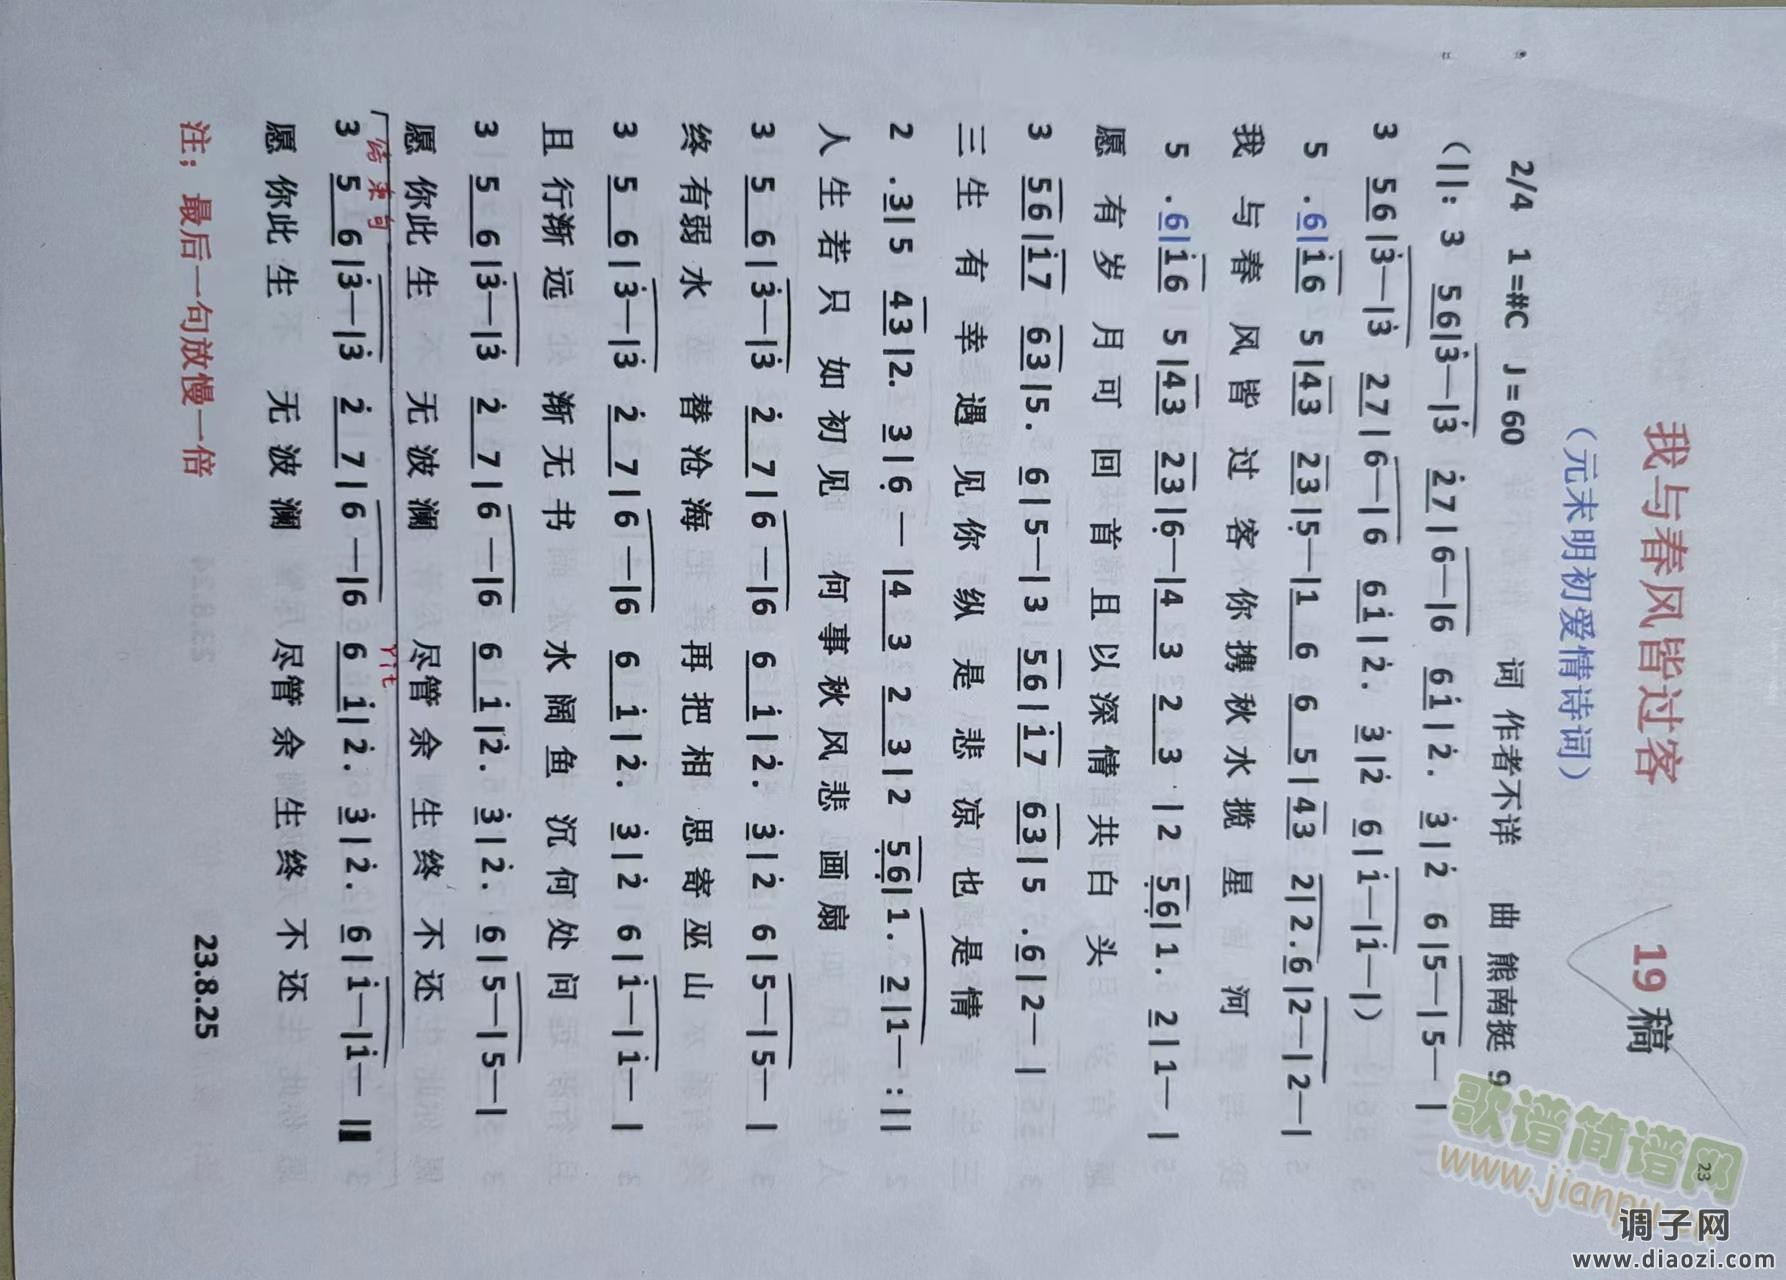 我与春风皆过客 19稿
（元末明初爱情诗词）
2/4 1=#C J=60 词 作者不详 曲 熊南挺 9
（||: 3 56|3̇—|3̇ 2̇7|6—|6 61̇|2̇. 3̇|2̇ 6|5—|5—|
3 56|3̇—|3̇ 27|6—|6 61̇|2̇. 3̇|2̇ 6|1̇—|1̇—|）
5 .6|1̇6 5|43 23|5̣—|1 6 6 5|43 2|2.6|2—|2—|
我与春风皆过客你携秋水揽星河
5 .6|1̇6 5|43 23|6̣—|4 3 2 3 |2 5̣6̣|1. 2|1—|
愿有岁月可回首且以深情共白头
3 56|1̇7 63|5. 6|5—|3 56|1̇7 63|5 .6|2—|
三生有幸遇见你纵是悲凉也是情
2 .3|5 43|2. 3|6̣ — |4 3 2 3|2 5̣6̣|1. 2|1—:||
人生若只如初见 何事秋风悲画扇
3 5 6|3̇—|3̇ 2̇ 7|6—|6 6 1̇|2̇. 3̇|2̇ 6|5—|5—|
终有弱水 替沧海 再把相思寄巫山
3 5 6|3̇—|3̇ 2̇ 7|6—|6 6 1̇|2̇. 3̇|2̇ 6|1̇—|1̇—|
且行渐远 渐无书 水阔鱼沉何处问
3 5 6|3̇—|3̇ 2̇ 7|6—|6 6 1̇|2̇. 3̇|2̇. 6|5—|5—|
愿你此生 无波澜 尽管余生终不还
结束句 rit
3 5 6|3̇—|3̇ 2̇ 7|6—|6 6 1̇|2̇. 3̇|2̇. 6|1̇—|1̇—||
愿你此生 无波澜 尽管余生终不还
注；最后一句放慢一倍 23.8.25
23
歌谱简谱网
www.jianpu
调子网
www.diaozi.com